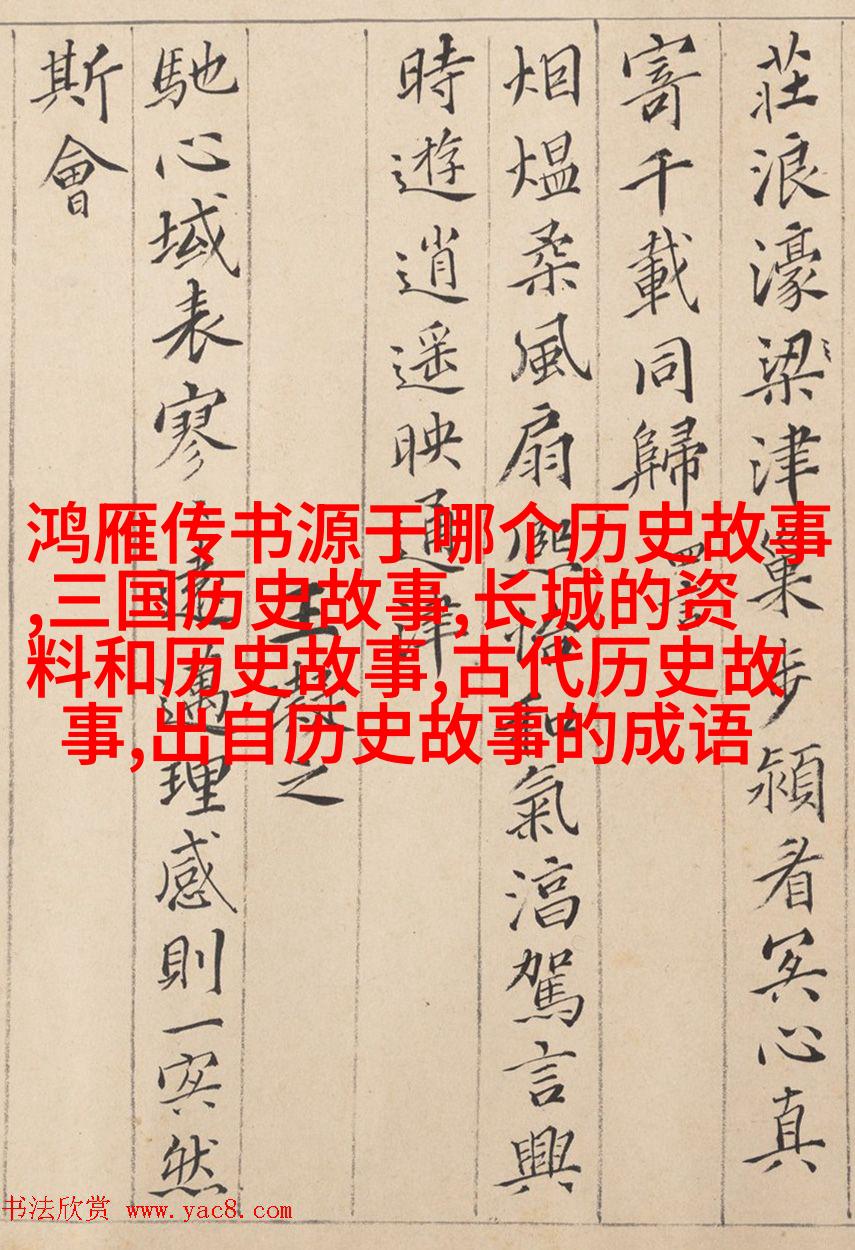 莊浪濠梁津巢步潁看冥心真
寄千載同歸
烟熅柔風扇熙怡和氣淳駕言興
時遊逍遥映通津
王凝之
馳心域表寥遠邁理感則一冥然
斯會
鸿雁传书源于哪个历史故事
,三国历史故事,长城的资
料和历史故事,古代历史故
事,出自历史故事的成语
书法欣赏 www.yac8.com